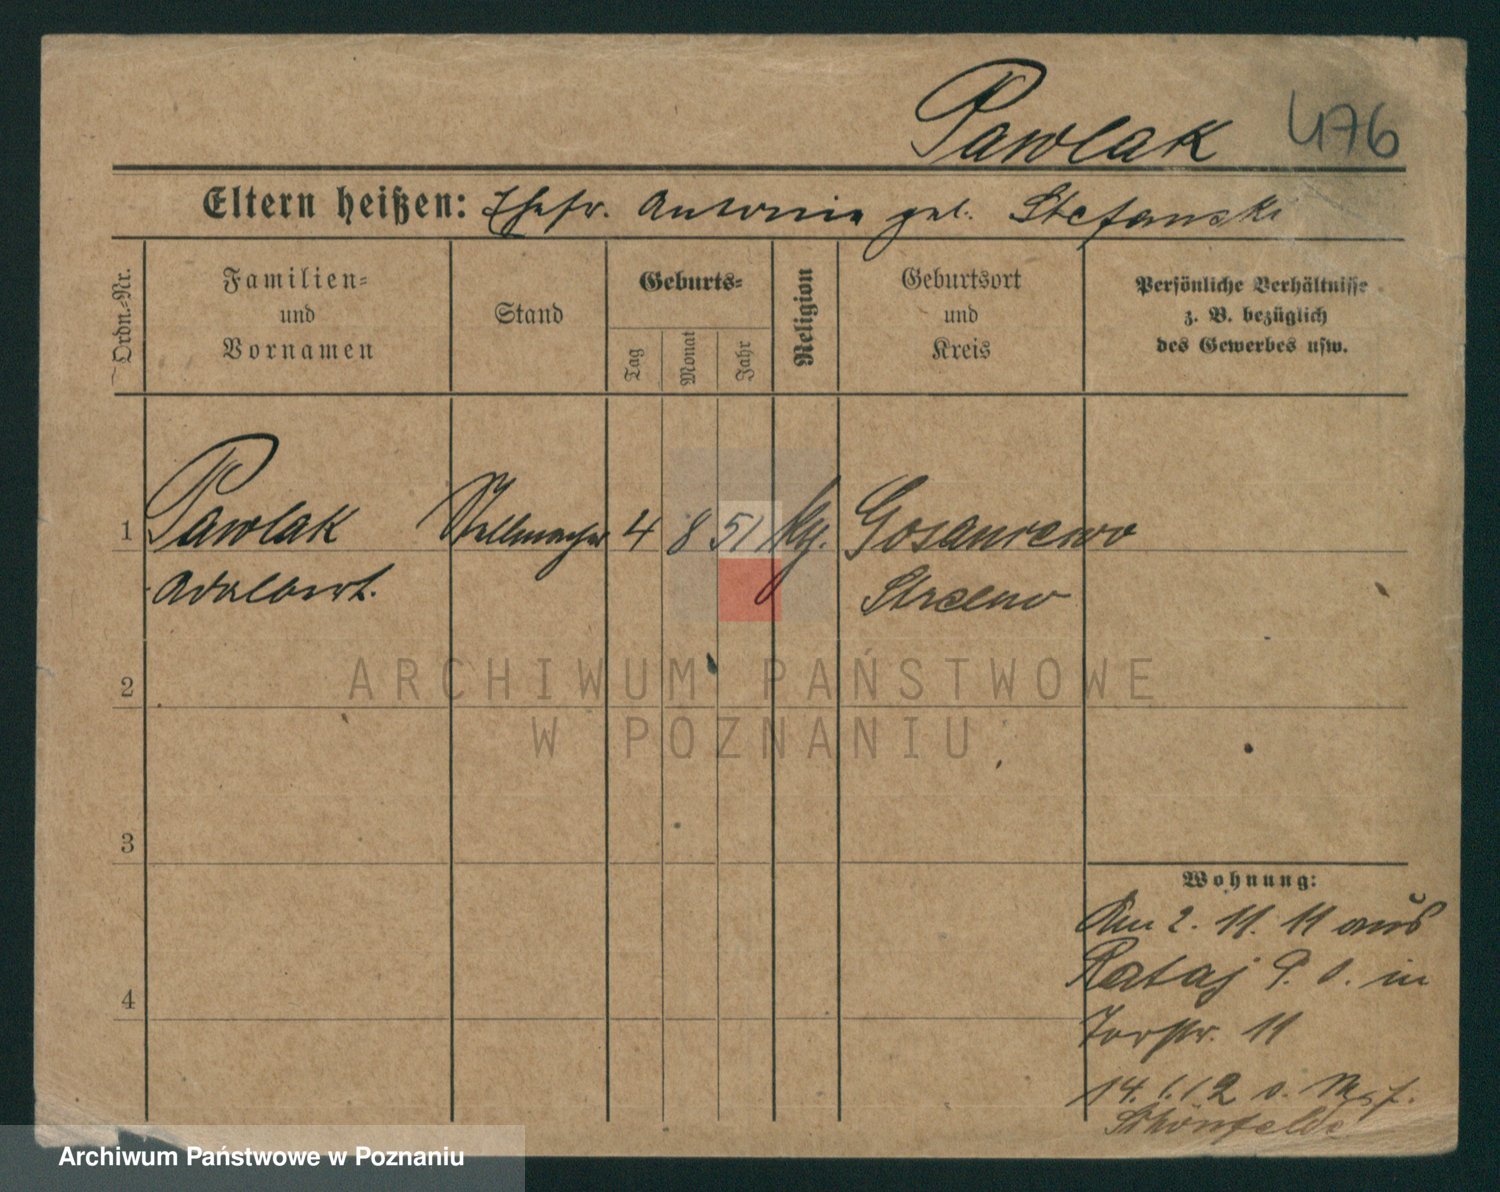 Pawlak 476
Eltern heißen: Ehefr. Antonie geb. Stefanski
Ordn.-Nr.
Familien-
und
Vornamen
Stand
Geburts-
Tag
Monat
Jahr
Religion
Geburtsort
und
Kreis
Persönliche Verhältnisse
z. B. bezüglich
des Gewerbes usw.
1 Pawlak Stellmacher 4 8 51 kg.
Adalbert.
Strelno
2
ARCHIWUM PAŃSTWOWE
W POZNANIU
3
4
Wohnung:
Am 2. 11. 11 aus
Rataj P. O. in
Torstr. 11
14. 1. 12 n.
Schönfelde
Archiwum Państwowe w Poznaniu